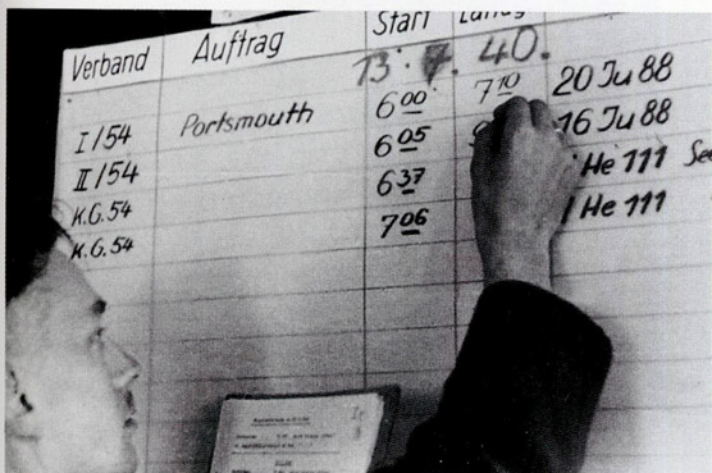 Verband Auftrag Start Landg
13. 7. 40.
I/54 Portsmouth 6 00 7 10 20 Ju 88
II/54 6 05 16 Ju 88
K.G. 54 6 37 He 111 See
K.G. 54 7 06 1 He 111